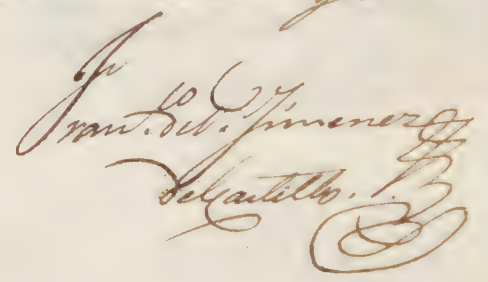 Fran.co de P. Jimenez
del Castillo.